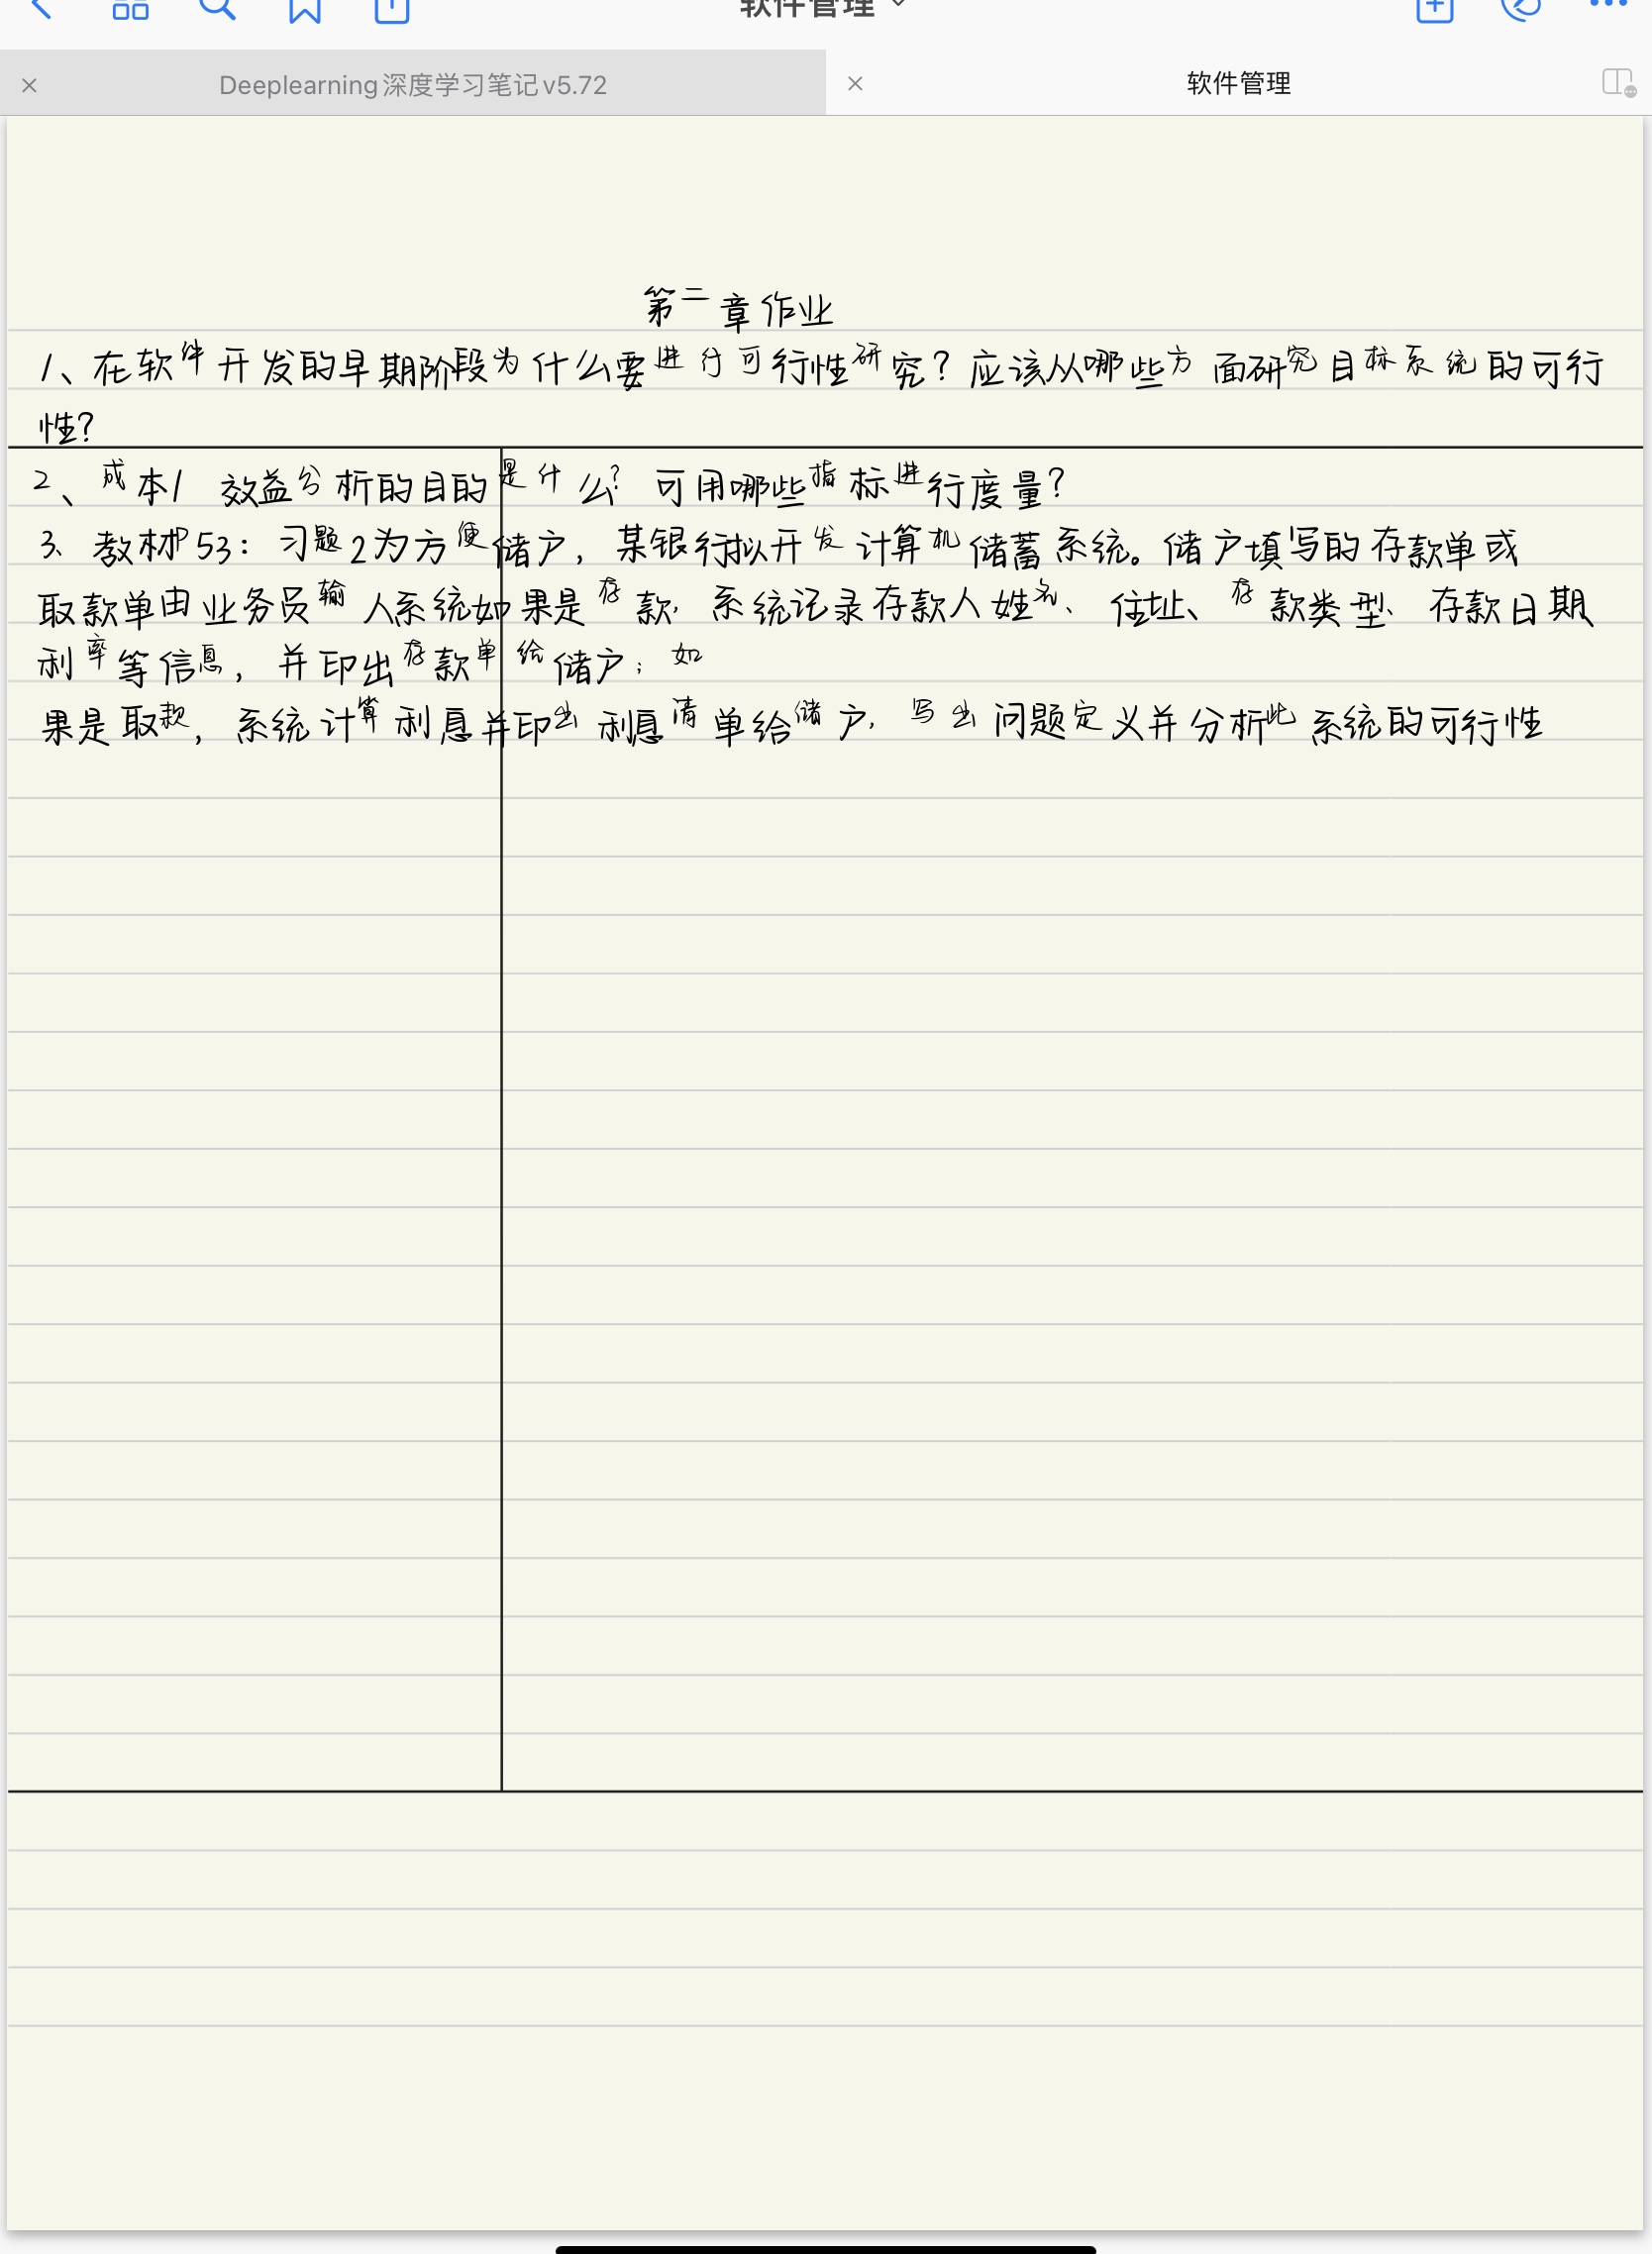 软件管理
Deeplearning深度学习笔记v5.72
软件管理
第二章作业
1、在软件开发的早期阶段为什么要进行可行性研究？应该从哪些方面研究目标系统的可行
性？
2、成本/效益分析的目的是什么？可用哪些指标进行度量？
3、教材P53：习题2为方便储户，某银行拟开发计算机储蓄系统。储户填写的存款单或
取款单由业务员输人系统如果是存款，系统记录存款人姓名、住址、存款类型、存款日期、
利率等信息，并印出存款单给储户；如
果是取款，系统计算利息并印出利息清单给储户，写出问题定义并分析此系统的可行性